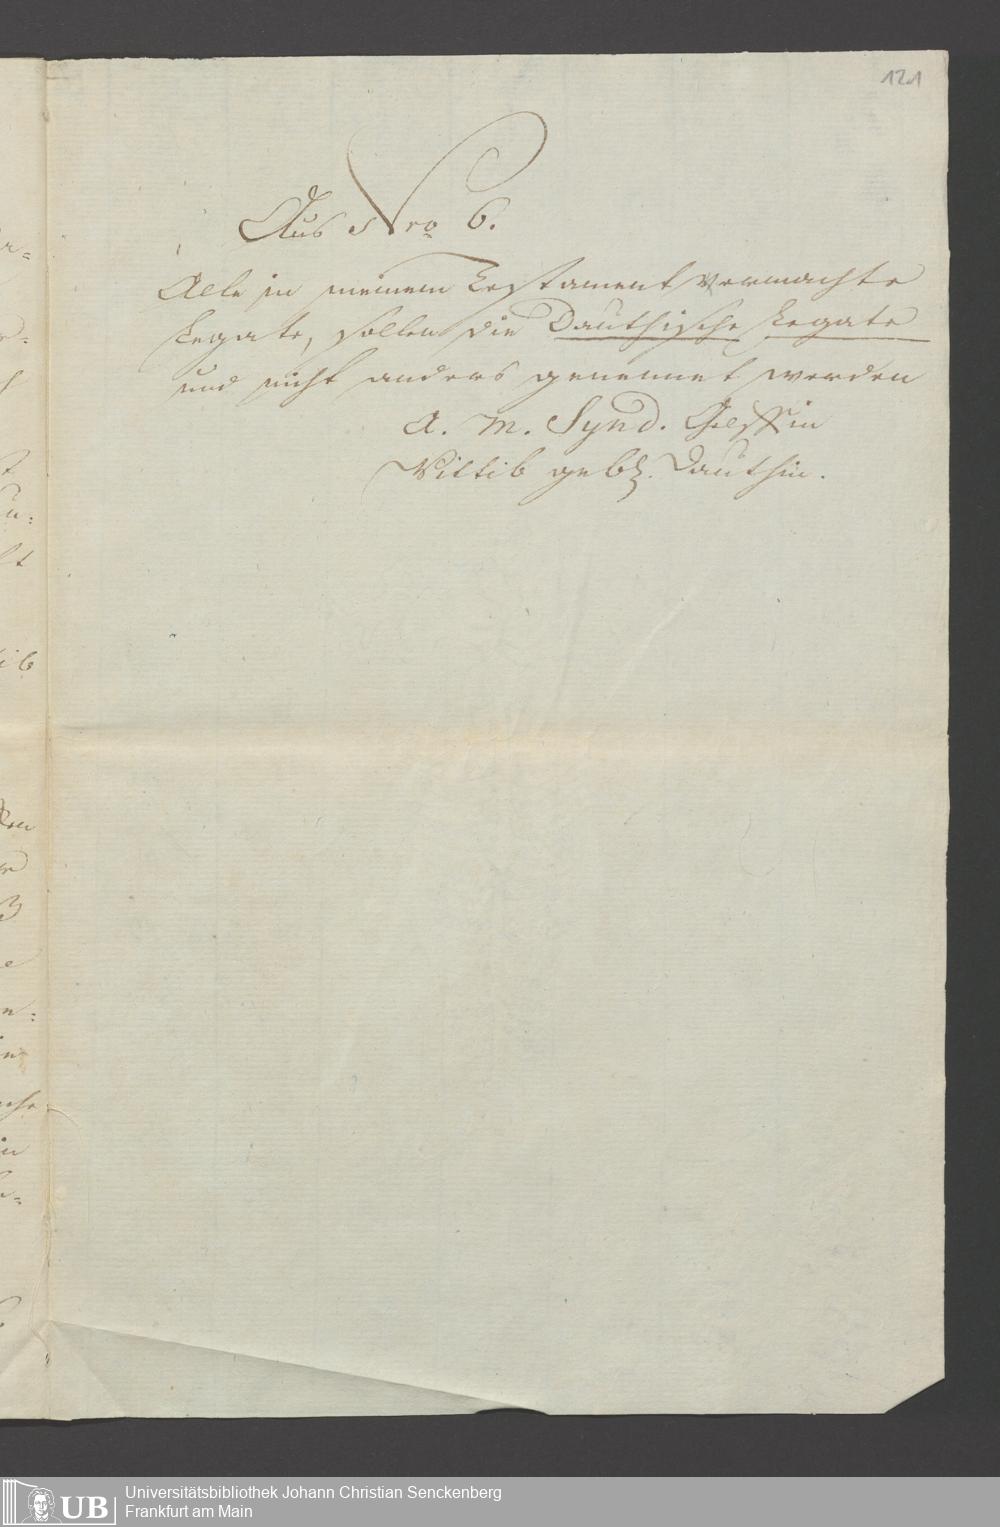 121
Aus Nro 6.
Alle in meinem Testament vermachte
Legate, sollen die Dauthische Legate
und nicht anders genennet werden
A. M. Synd.
Wittib geb. Dauthin.
UB Universitätsbibliothek Johann Christian Senckenberg
Frankfurt am Main